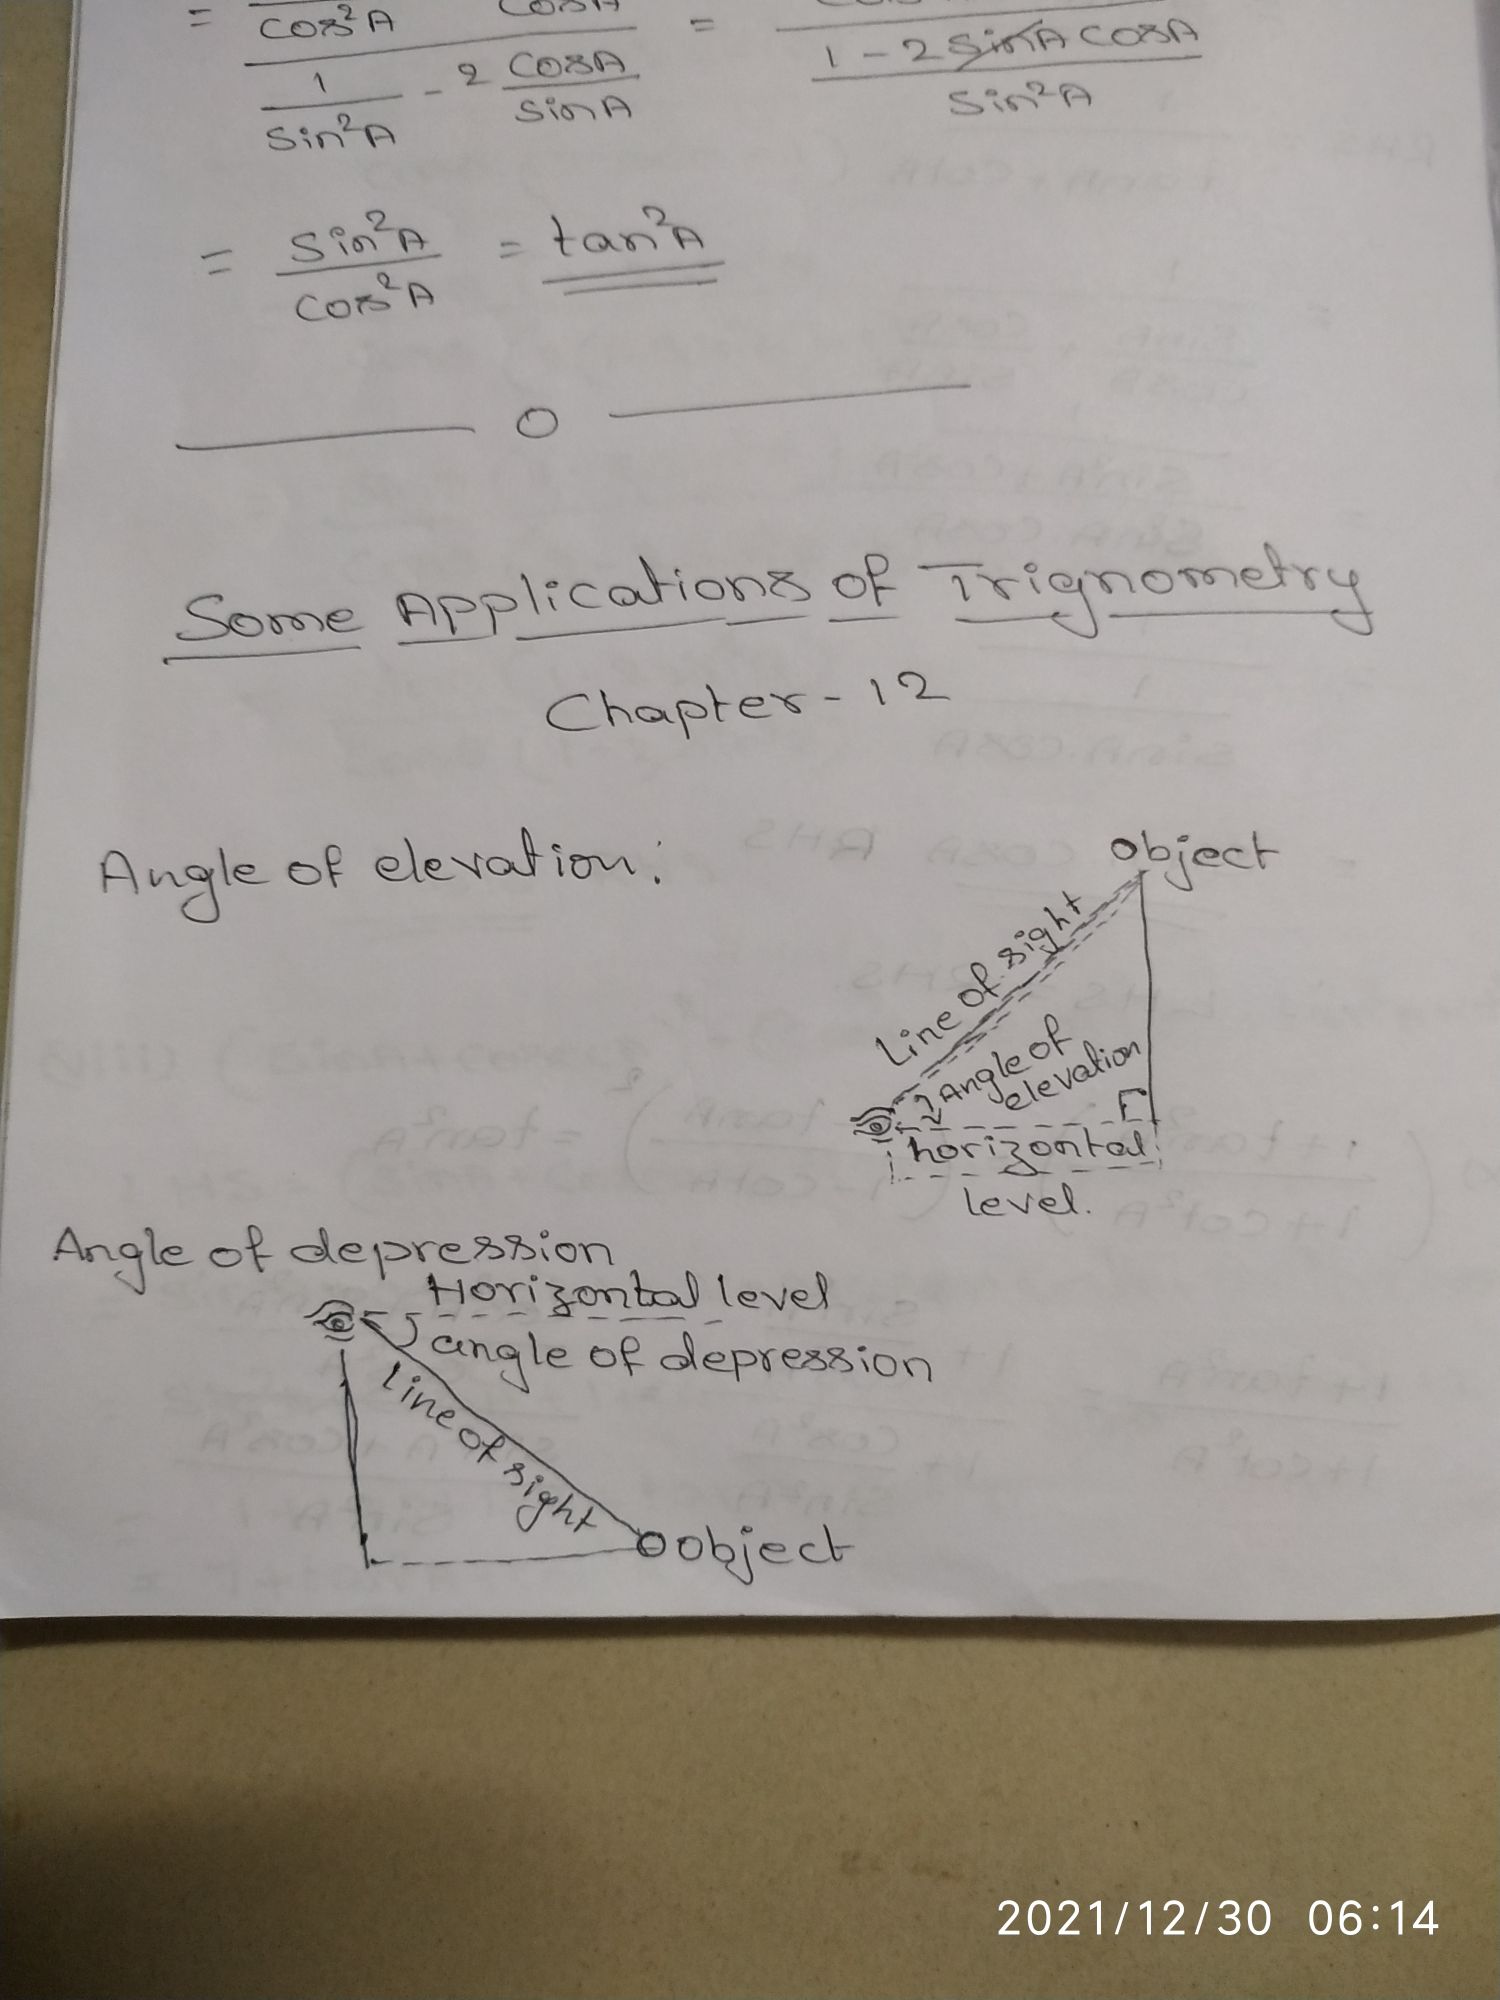 = cos²A cosA =
1/sin²A - 2 cosA/sinA
1 - 2 sinA cosA
sin²A
= sin²A/cos²A = tan²A
Some Applications of Trignometry
Chapter - 12
Angle of elevation:
Object
Line of sight
Angle of
elevation
horizontal
level.
Angle of depression
Horizontal level
angle of depression
Line of sight
Object
2021/12/30 06:14